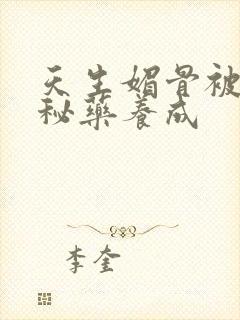 天生媚骨被
秘药养成
李奎